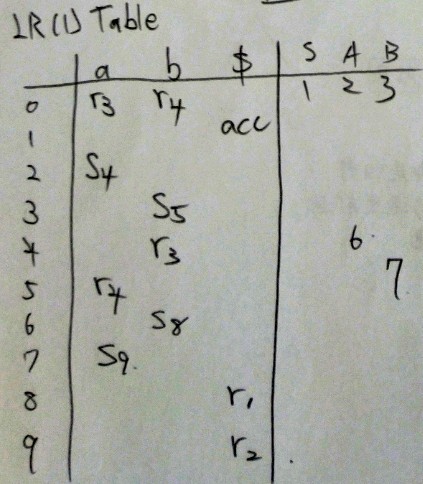 LR(1) Table
a b $ S A B
0 r3 r4 1 2 3
1 acc
2 S4
3 S5
4 r3 6
5 r4 7
6 S8
7 S9
8 r1
9 r2